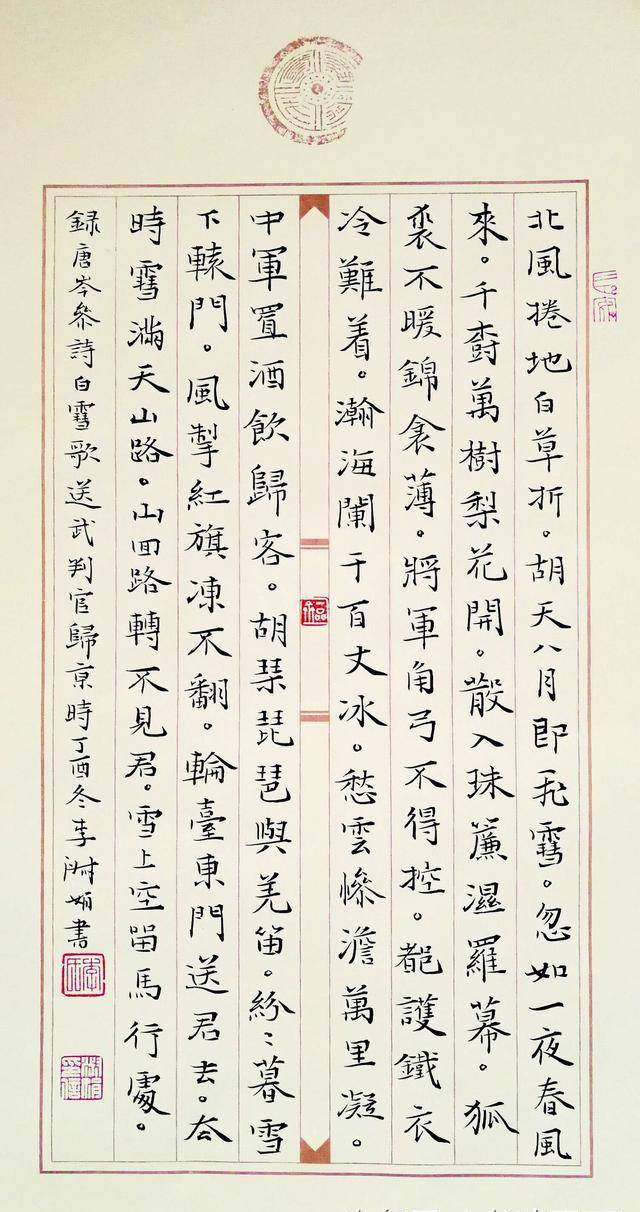 北風捲地白草折。胡天八月即飛雪。忽如一夜春風
來。千樹萬樹梨花開。散入珠簾濕羅幕。狐
裘不暖錦衾薄。將軍角弓不得控。都護鐵衣
冷難着。瀚海闌干百丈冰。愁雲慘澹萬里凝。
中軍置酒飲歸客。胡琴琵琶與羌笛。紛〻暮雪
下轅門。風掣紅旗凍不翻。輪臺東門送君去。去
時雪滿天山路。山回路轉不見君。雪上空留馬行處。
録唐岑參詩白雪歌送武判官歸京時丁酉冬李書